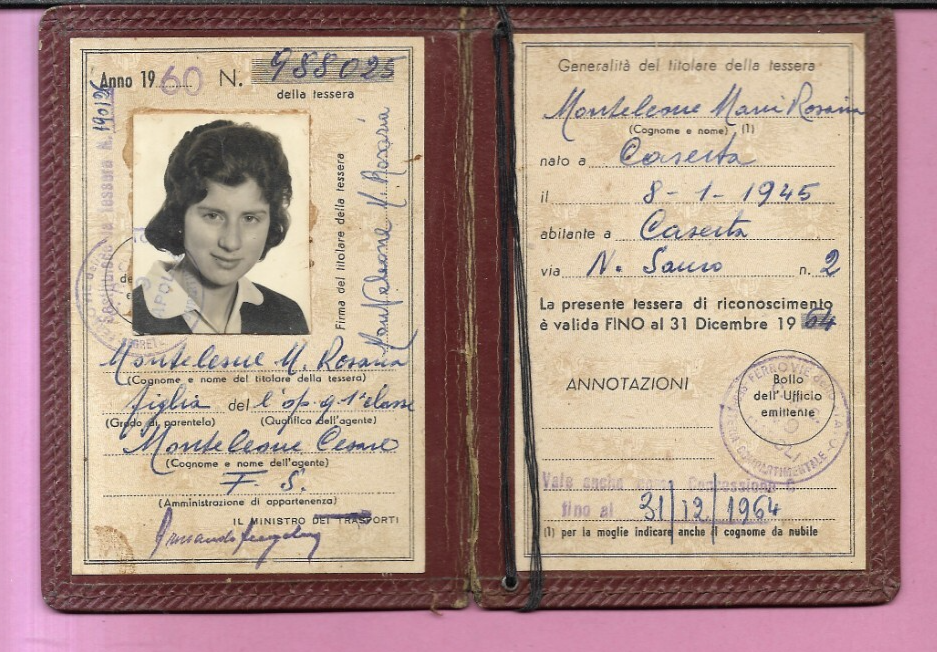 Anno 1960 N. 988025
della tessera
Firma del titolare della tessera
Monteleone M. Rosaria
Monteleone M. Rosaria
(Cognome e nome del titolare della tessera)
figlia del l'op. q. 1ª classe
(Grado di parentela) (Qualifica dell'agente)
Monteleone Cesare
(Cognome e nome dell'agente)
F. S.
(Amministrazione di appartenenza)
IL MINISTRO DEI TRASPORTI
Generalità del titolare della tessera
Monteleone Maria Rosaria
(Cognome e nome) (1)
nato a Caserta
il 8-1-1945
abitante a Caserta
via N. Sauro n. 2
La presente tessera di riconoscimento
è valida FINO al 31 Dicembre 1964
ANNOTAZIONI
Bollo
dell'Ufficio
emittente
FERROVIE dello
COMPARTIMENTALE
Vale anche come Concessione C
fino al 31/12/1964
(1) per la moglie indicare anche il cognome da nubile